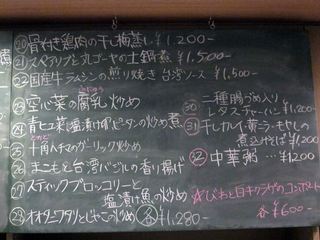 ⑳ 骨付き鶏肉の干し梅蒸し ¥1,200-
㉑ スペアリブとゴーヤの土鍋煮 ¥1,500-
㉒ 国産牛ラムシンの煎り焼き 台湾ソース ¥1,500-
㉓ 空心菜の腐乳炒め
㉔ 青セコ菜(塩漬け)ピータンの炒め煮
㉕ 十角人チマのガーリック炒め
㉖ まこもと台湾バジルの香り揚げ
㉗ スティックブロッコリーと
塩漬け魚の炒め
㉘ オオタニワタリとじゃこの炒め
各 ¥1,280-
㉚ 二種腸づめ入り
レタスチャーハン ¥1,200-
㉛ 干しカイ・もやしの
煮込みそば ¥1,200
㉜ 中華粥 …¥1,200
びわと日キクラゲのコンポート
各 ¥600-